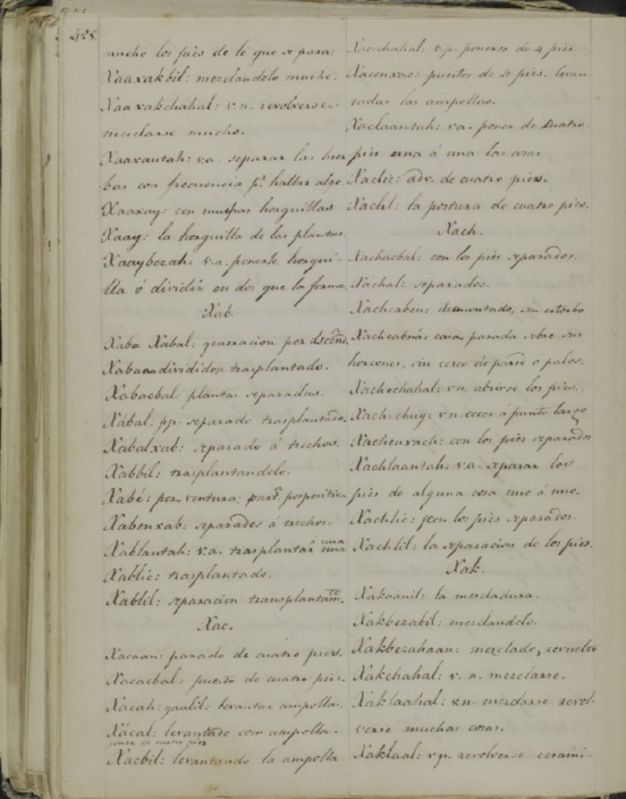 428
mucho los piés de lo que se para:
Xaaxakbil: mezclandolo mucho.
Xaaxakchahal: v.n. revolverse
mezclarse mucho.
Xaaxantah: v.a. separar las hier
bas con frecuencia pa. hallar algo.
Xaaxay: con muchas horquillas
Xaay: la horquilla de las plantas.
Xaaybezah: v.a. ponerle horqui-
lla ó dividir en dos que la forme.
Xab
Xaba Xabal: generacion por
Xabaan dividido trasplantado.
Xabacbal: plantas separadas.
Xábal: pp. separado trasplantado.
Xabalxab: separado á trechos.
Xabbil: trasplantandolo.
Xabé: por ventura: part. pospositiva.
Xabenxab: separados á trechos.
Xablantah: v.a. trasplantar á una una
Xablic: trasplantado.
Xablil: separacion
Xac.
Xacaan: parado de cuatro pies.
Xacacbal: puesto de cuatro pies.
Xacah: levantar ampollas.
Xácal: levantado con ampolla.
poner de cuatro pies
Xacbil: levantando la ampolla
Xacchahal: v.p. ponerse de 4 pies.
Xacenxac: puestos de 4 pies. levan
tadas las ampollas.
Xaclaantah: v.a. poner de cuatro
pies una á una las cosas
Xaclic: adv. de cuatro pies.
Xaclil: la postura de cuatro pies.
Xach.
Xachacbal: con los pies separados.
Xáchal: separados.
Xachcaben: desmontado, sin estorbo
Xachcabná: casa parada sobre sus
horcones, sin cerco de pared ó palos.
Xachchahal: v.n. abrirse los pies.
Xach-chuy: v.n. coser á punto largo
Xachenxach: con los pies separados
Xachlaantah: v.a. separar los
pies de alguna cosa uno á uno.
Xachlic: con los pies separados
Xachlil: la separacion de los pies.
Xak.
Xakaanil: la mezcladura.
Xakbezabil: mezclandolo.
Xakbezahaan: mezclado, revuelto
Xakchahal: v.n. mezclarse.
Xaklaahal: v.n. mezclarse revol-
verse muchas cosas.
Xaklaal: v.p. revolverse